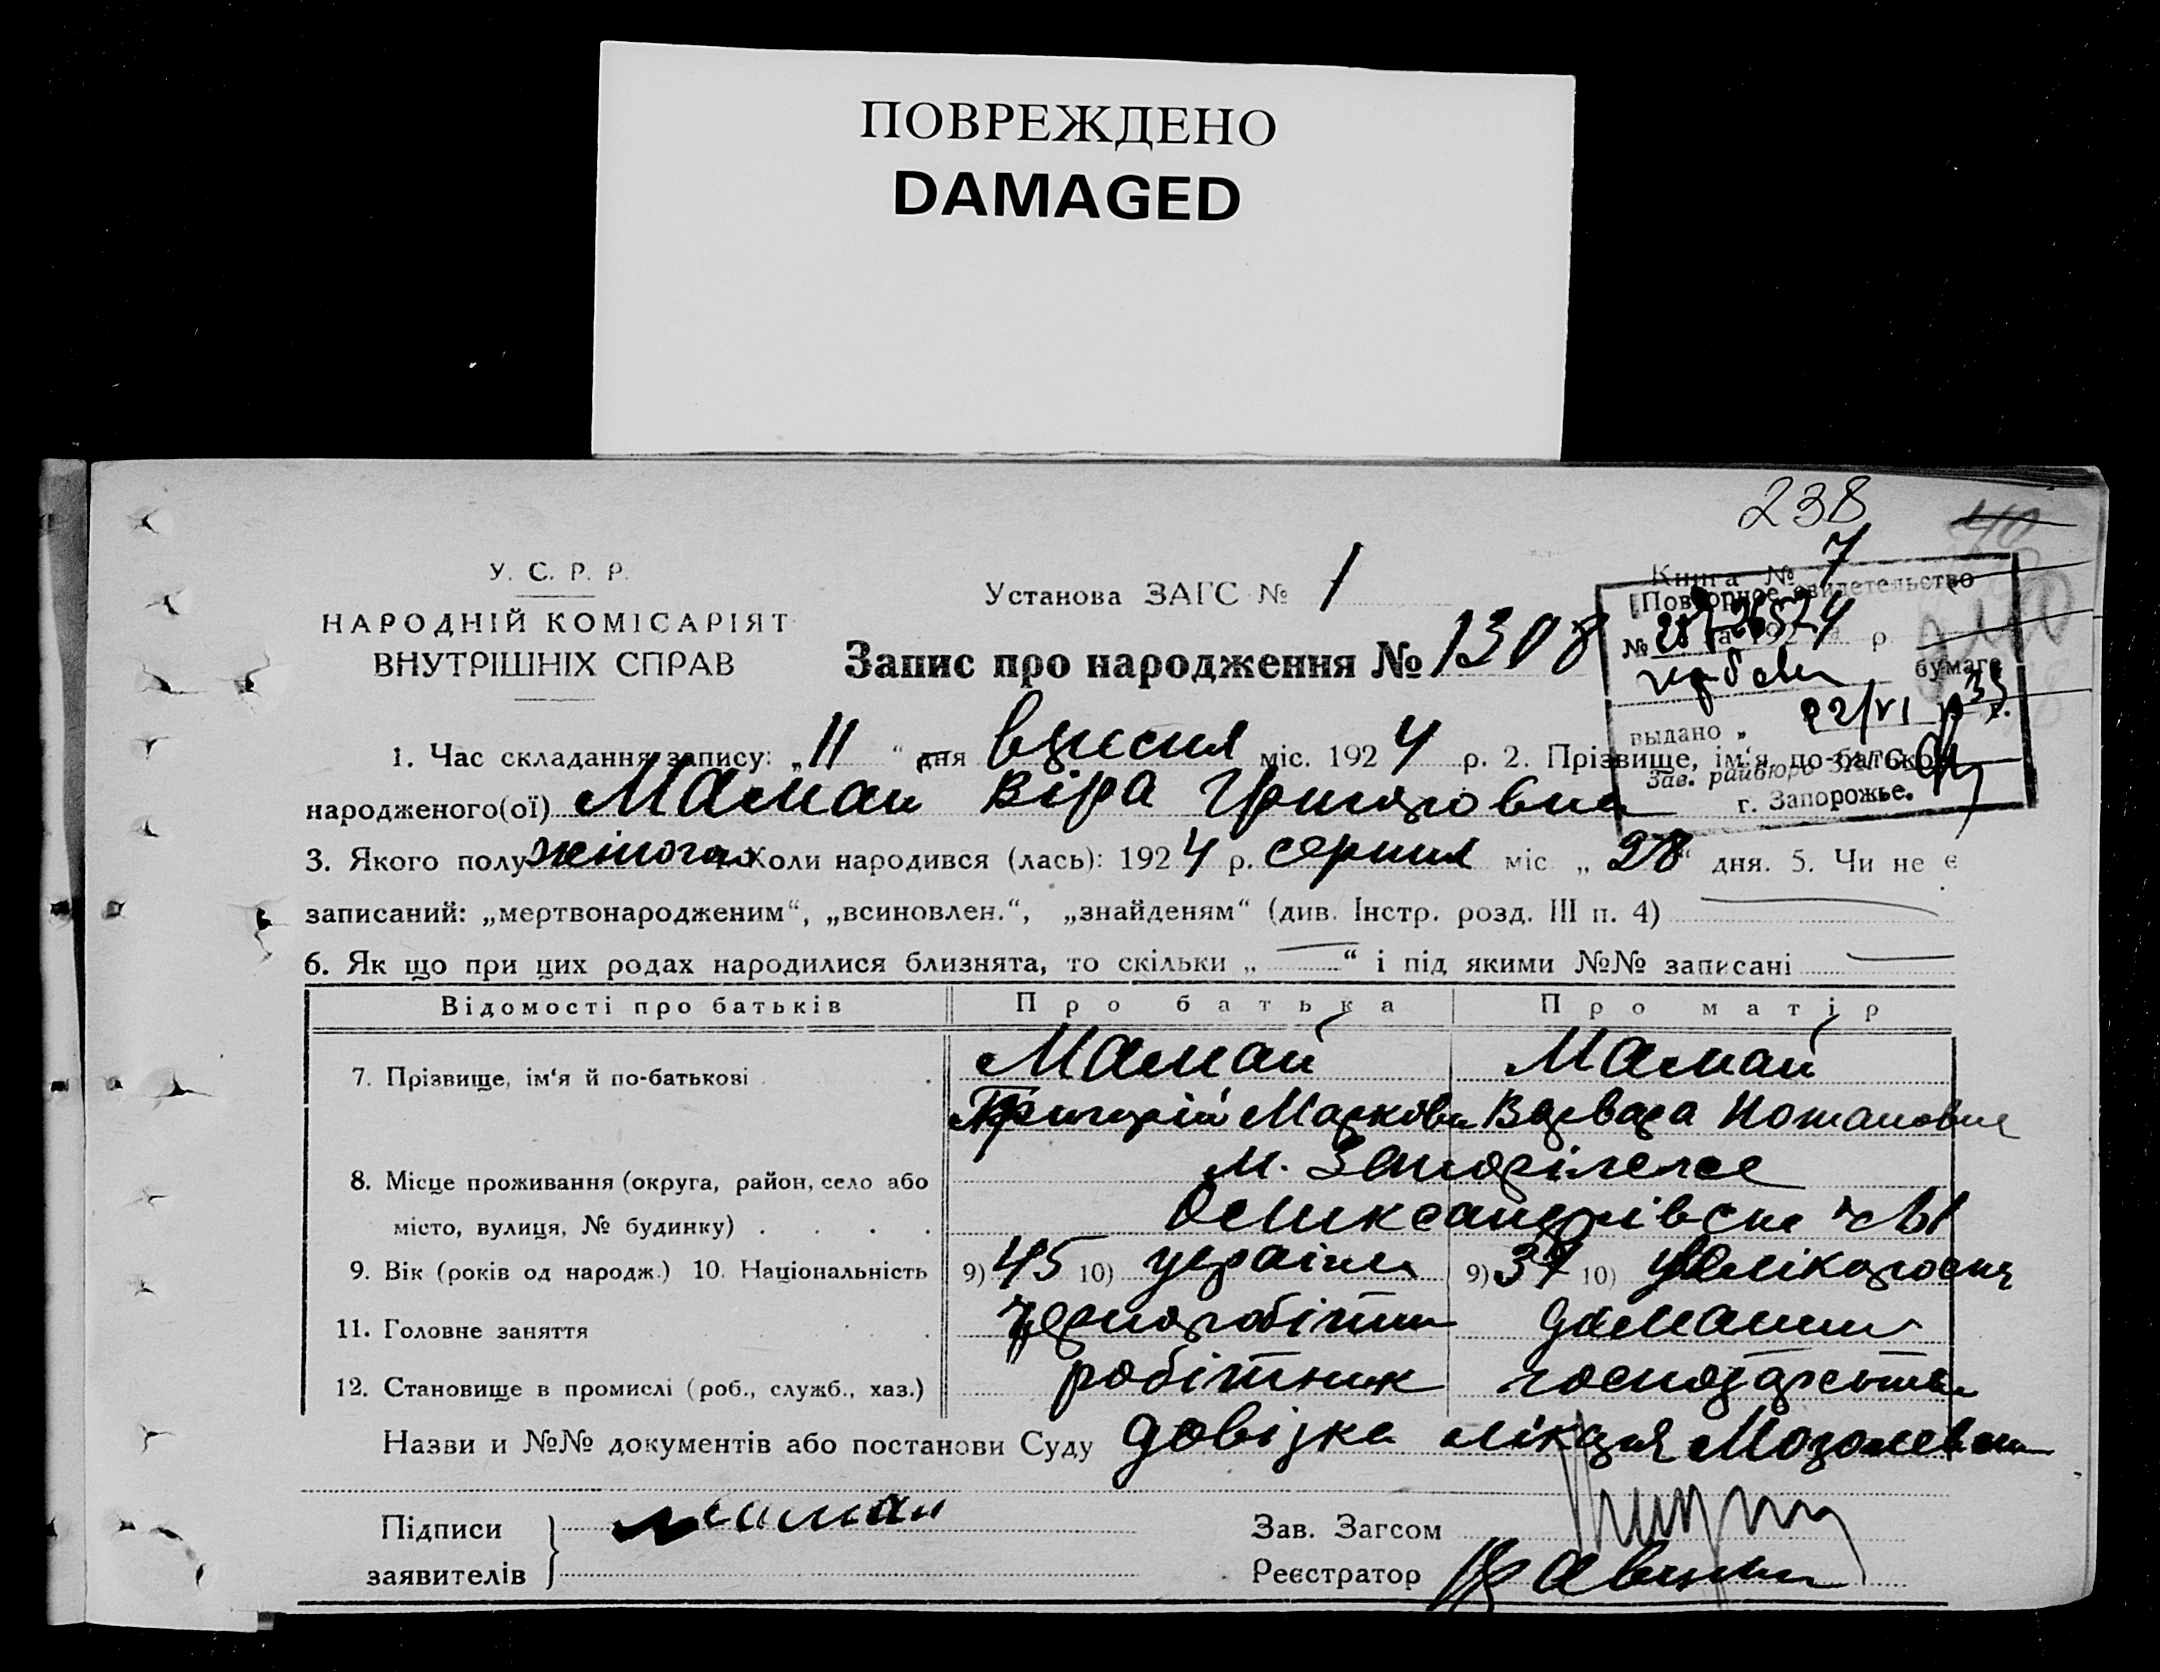 ПОВРЕЖДЕНО
DAMAGED
238
У. С. Р. Р.
НАРОДНІЙ КОМІСАРІЯТ
ВНУТРІШНІХ СПРАВ
Установа ЗАГС № 1
Книга № 7
Запис про народження № 1308
Повторное свидетельство
№
бумаге
выдано „ 22/VI 35 г.
Зав. райбюро ЗАГС
г. Запорожье.
1. Час складання запису: „11“ дня вересня міс. 1924 р. 2. Прізвище, ім‘я, по-батькові
народженого(ої) Мамай Віра Григоровна
3. Якого полу жіночого 4. Коли народився (лась): 1924 р. серпня міс. „28“ дня. 5. Чи не є
записаний: „мертвонародженим“, „всиновлен.“, „знайденям“ (див. Інстр. розд. III п. 4)
6. Як що при цих родах народилися близнята, то скільки „ “ і під якими №№ записані
Відомості про батьків Про батька Про матір
7. Прізвище, ім‘я й по-батькові Мамай Мамай
Григорій Маркови Варвара Потаповна
8. Місце проживання (округа, район, село або м. Запоріжже
місто, вулиця, № будинку)
9. Вік (років од народж.) 10. Національність 9) 45 10) україн 9) 37 10) великорося
11. Головне заняття чернороботник домашнє
12. Становище в промислі (роб., служб., хаз.) робітник господарство
Назви и №№ документів або постанови Суду довідка лікаря
Підписи Мамай Зав. Загсом
заявителів Реєстратор